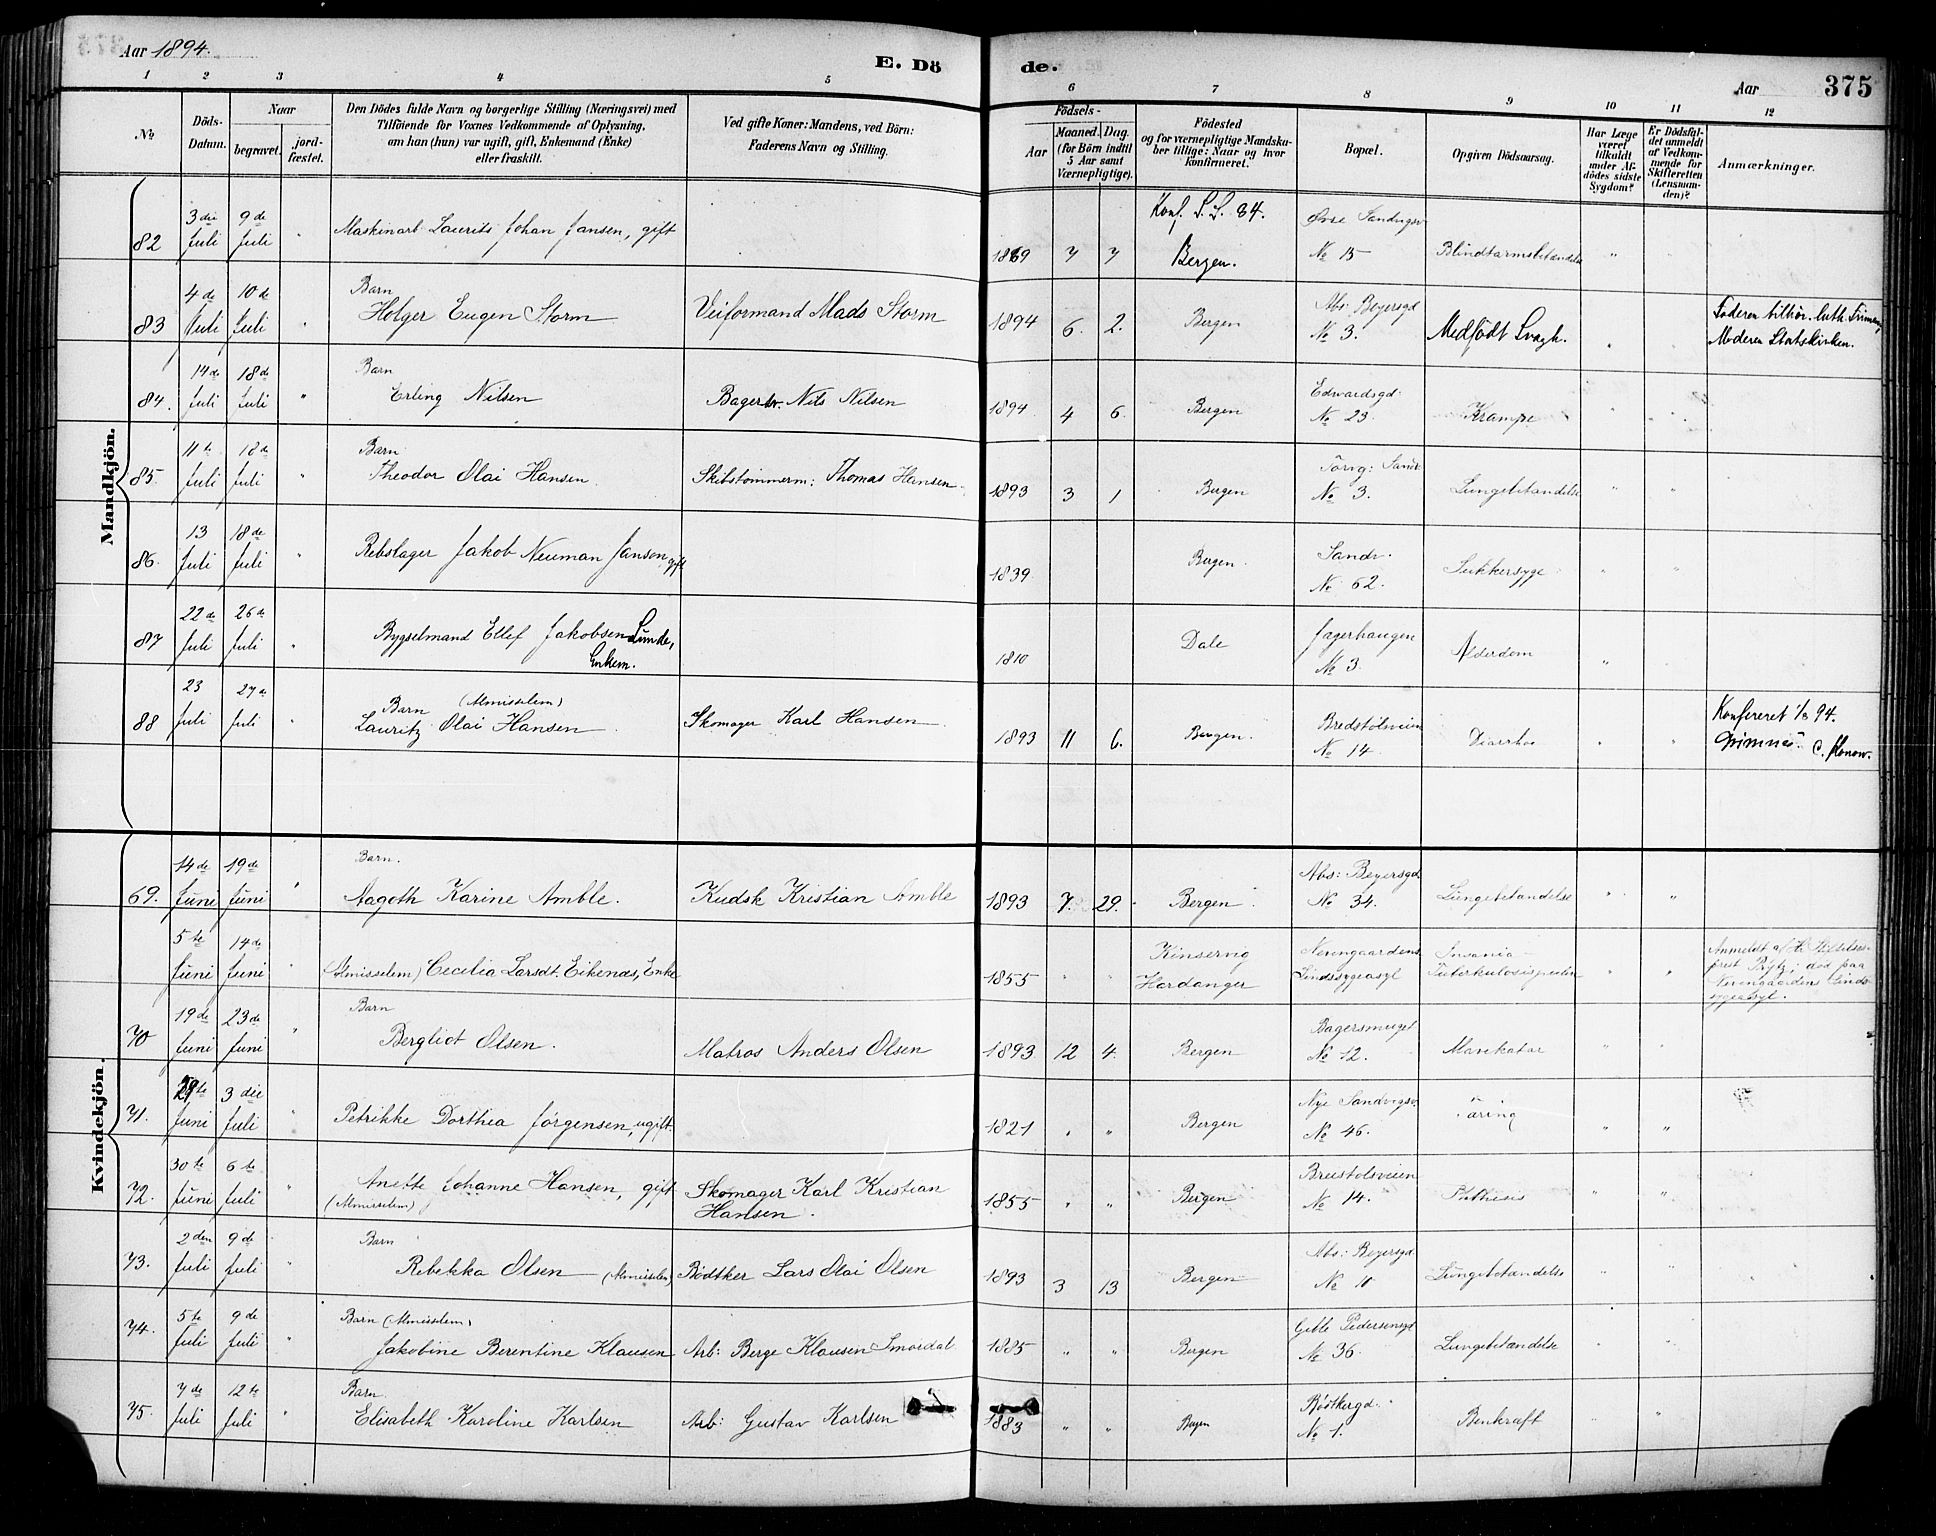 Aar 1894.
E. Dö
de.
Aar
375
1 2 3 4 5 6 7 8 9 10 11 12
No
Döds-Datum.
Naar
begravet.
jord-fæstet.
Den Dödes fulde Navn og borgerlige Stilling (Næringsvei) med
Tilföiende for Voxnes Vedkommende af Oplysning,
om han (hun) var ugift, gift, Enkemand (Enke)
eller fraskilt.
Ved gifte Koner: Mandens, ved Börn:
Faderens Navn og Stilling.
Födsels-
Aar
Maaned. Dag.
(for Börn indtil
5 Aar samt
Værnepligtige).
Födested
og for værnepligtige Mandska-
ber tillige: Naar og hvor
konfirmeret.
Bopæl.
Opgiven Dödsaarsag.
Har Læge
været
tilkaldt
under Af-
dödes sidste
Sygdom?
Er Dödsfal-
det anmeldt
af Vedkom-
mende for
Skifteretten
(Lensman-
den)?
Anmærkninger.
Mandkjön.
82 3die Juli 9de Juli " Maskinarb. Laurits Johan Jansen, gift 1869 7 7 Konf. S. S. 84. Bergen. Øvre Sandvigsv No 15 Blindtarmsbetændelse "
83 4de Juli 10de Juli " Barn Holger Eugen Storm Veiformand Mads Storm 1894 6. 2. Bergen Abs: Beyersgd No 3. Medfödt Svagh. " Faderen tilhör. luth. Frimen., Moderen Statskirken.
84. 14de Juli 18de Juli " Barn Erling Nilsen Bagersv. Nils Nilsen 1894 4 6. Bergen Edwardsgd. No 23 Krampe "
85. 11te Juli 18de Juli " Barn Theodor Olai Hansen. Skibstömmerm: Thomas Hansen 1893 3 1 Bergen Sandv. No 3. Lungebetændelse " "
86. 13 Juli 18de Juli " Rebslager Jakob Neuman Jansen, gift 1839. Bergen. Sandv. No 62. Sukkersyge " "
87 22de Juli 26de Juli " Bygselmand Ellef Jakobsen Lunde, Enkem. 1810 Dale No 3. Alderdom "
88 23 Juli 27de Juli " Barn (Almisselem) Lauritz Olai Hansen. Skomager Karl Hansen 1893 11 6. Bergen. No 14. Diarrhoe " " Konfereret 1/8 94. C. Konow.
Kvindekjön.
69. 14de Juni 19de Juni " Barn. Aagoth Karine Amble. Kudsk Kristian Amble 1893 7. 29. Bergen Abs: Beyersgd No 34. Lungebetændelse " "
5te Juni 14de Juni " (Almisselem) Cecilia Larsdt. Eikenæs, Enke 1855 " " Kinservig Hardanger Neevengaardens Sindssygeasyl Insania " " Anmeldt af Hr. prest Rytz; död paa Neevengaardens Sindssygeasyl.
70 19de Juni 23de Juni " Barn Bergliot Olsen. Matros Anders Olsen 1893 12 4. Bergen Bagersmuget No 12. Mavekatar "
71. 29te Juni 3die Juli " Petrikke Dorthea Jörgensen, ugift. 1821 " " Bergen Nye Sandvigsv. No 46. Tæring " "
72. 30te Juni 6te Juli " Anette Johanne Hansen, gift (Almisselem) Skomager Karl Kristian Hansen. 1855 " " Bergen No 14. Phthisis " "
73. 2den Juli 9de Juli " Barn Rebekka Olsen (Almisselem) Bödtker Lars Olai Olsen 1893 3 13 Bergen Abs: Beyersgd No 10 Lungebetændelse
74. 5te Juli 9de Juli " Barn (Almisselem) Jakobine Berentine Klausen Arb: Berge Klausen Smördal 1885 " " Bergen Geble Pedersensgd No 36. Lungebetændelse
75. 7de Juli 12te Juli " Barn. Elisabeth Karoline Karlsen Arb: Gustav Karlsen 1883 " " Bergen Bödtkergd. No 1. Benkræft